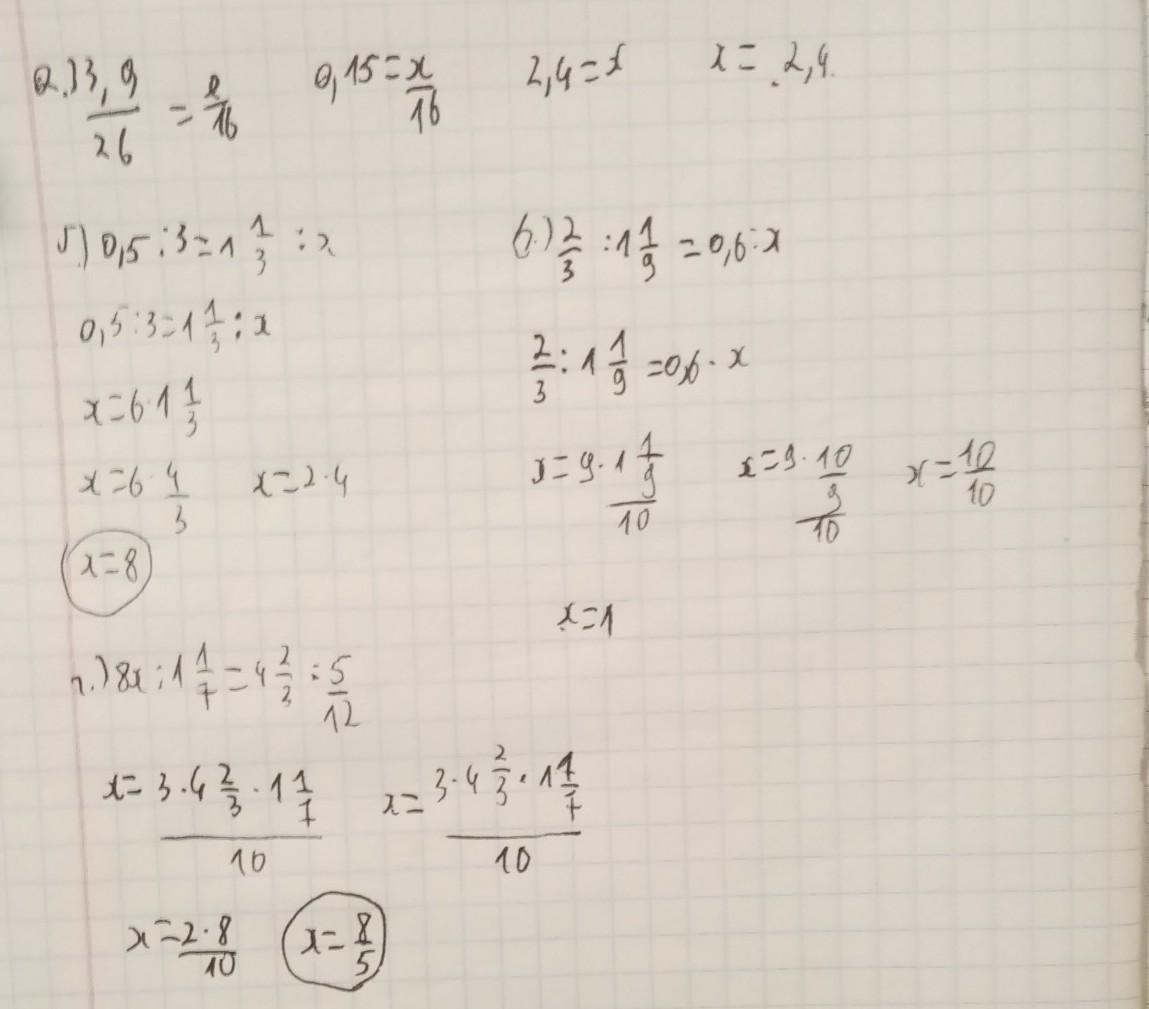 а.) 3,9/26 = x/16 0,15 = x/16 2,4 = x x = 2,4
б.) 0,5 : 3 = 1 1/3 : x
0,5 : 3 = 1 1/3 : x
x = 6 · 1 1/3
x = 6 · 4/3 x = 2 · 4
x = 8
в.) 2/3 : 1 1/9 = 0,6 : x
2/3 : 1 1/9 = 0,6 · x
x = (9 · 1 1/9)/10 x = (9 · 10/9)/10 x = 10/10
x = 1
г.) 8x : 1 1/7 = 4 2/3 : 5/12
x = (3 · 4 2/3 · 1 1/7)/10 x = (3 · 4 2/3 · 1 1/7)/10
x = 2·8/10 x = 8/5